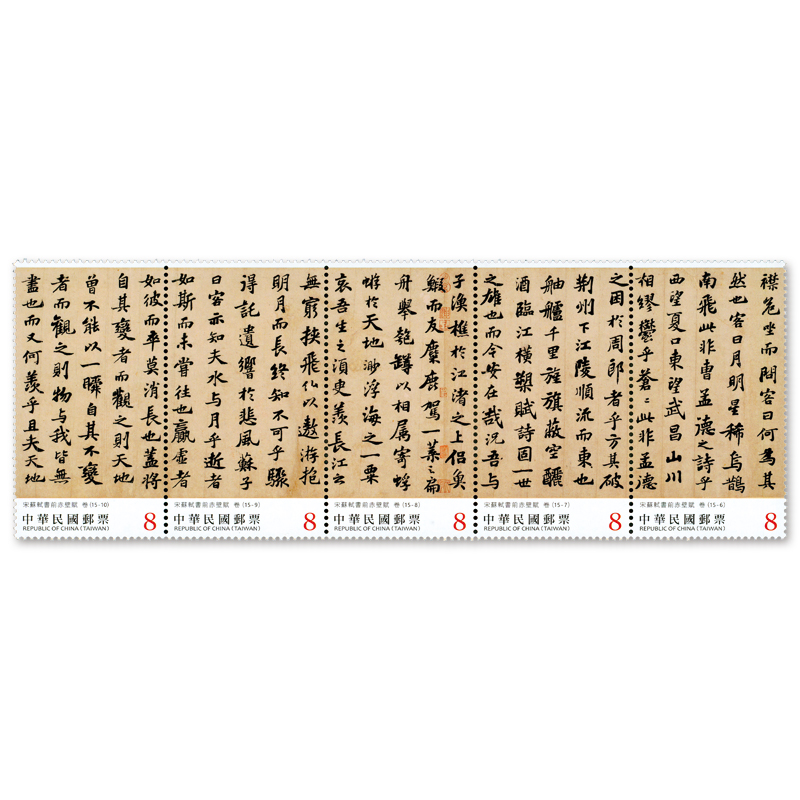 襟危坐而問客曰何為其
然也客曰月明星稀烏鵲
南飛此非曹孟德之詩乎
西望夏口東望武昌山川
相繆鬱乎蒼〻此非孟德
之困於周郎者乎方其破
荊州下江陵順流而東也
舳艫千里旌旗蔽空釃
酒臨江橫槊賦詩固一世
之雄也而今安在哉況吾与
子漁樵於江渚之上侶魚
鰕而友麋鹿駕一葉之扁
舟舉匏罇以相属寄蜉
蝣於天地渺浮海之一粟
哀吾生之須臾羨長江之
無窮挾飛仙以遨游抱
明月而長終知不可乎驟
得託遺響於悲風蘇子
曰客亦知夫水与月乎逝者
如斯而未嘗往也贏虛者
如彼而卒莫消長也蓋將
自其變者而觀之則天地
曾不能以一瞬自其不變
者而觀之則物与我皆無
盡也而又何羨乎且夫天地
宋蘇軾書前赤壁賦 卷 (15-10)
中華民國郵票 8
REPUBLIC OF CHINA (TAIWAN)
宋蘇軾書前赤壁賦 卷 (15-9)
中華民國郵票 8
REPUBLIC OF CHINA (TAIWAN)
宋蘇軾書前赤壁賦 卷 (15-8)
中華民國郵票 8
REPUBLIC OF CHINA (TAIWAN)
宋蘇軾書前赤壁賦 卷 (15-7)
中華民國郵票 8
REPUBLIC OF CHINA (TAIWAN)
宋蘇軾書前赤壁賦 卷 (15-6)
中華民國郵票 8
REPUBLIC OF CHINA (TAIWAN)